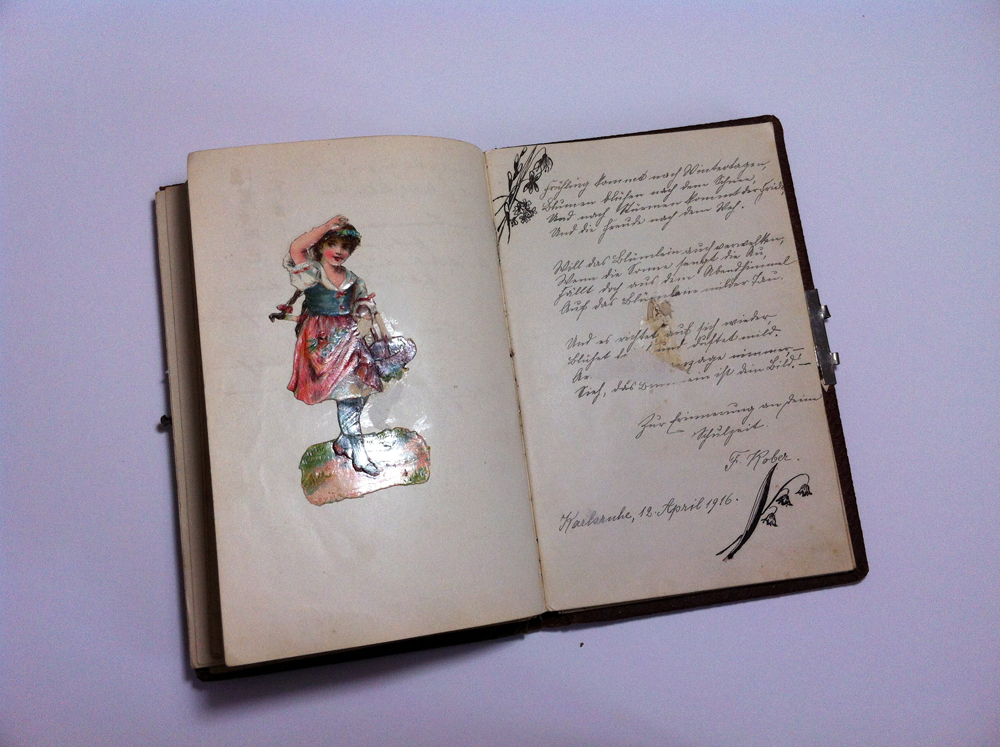 Frühling kommt nach Wintertagen,
Blumen blühen nach dem Schnee,
Und nach Stürmen kommt der Friede
Und die Freude nach dem Weh.
Will das Blümlein auch verwelken,
Wenn die Sonne sengt die Au,
Fällt doch aus dem Abendhimmel
Auf das Blümlein milder Tau.
Und es richtet auf sich wieder
Blühet und duftet mild.
zage nimmer
Sieh, das ist dein Bild! —
Zur Erinnerung an deine
Schulzeit.
F. Kober.
Karlsruhe, 12. April 1916.